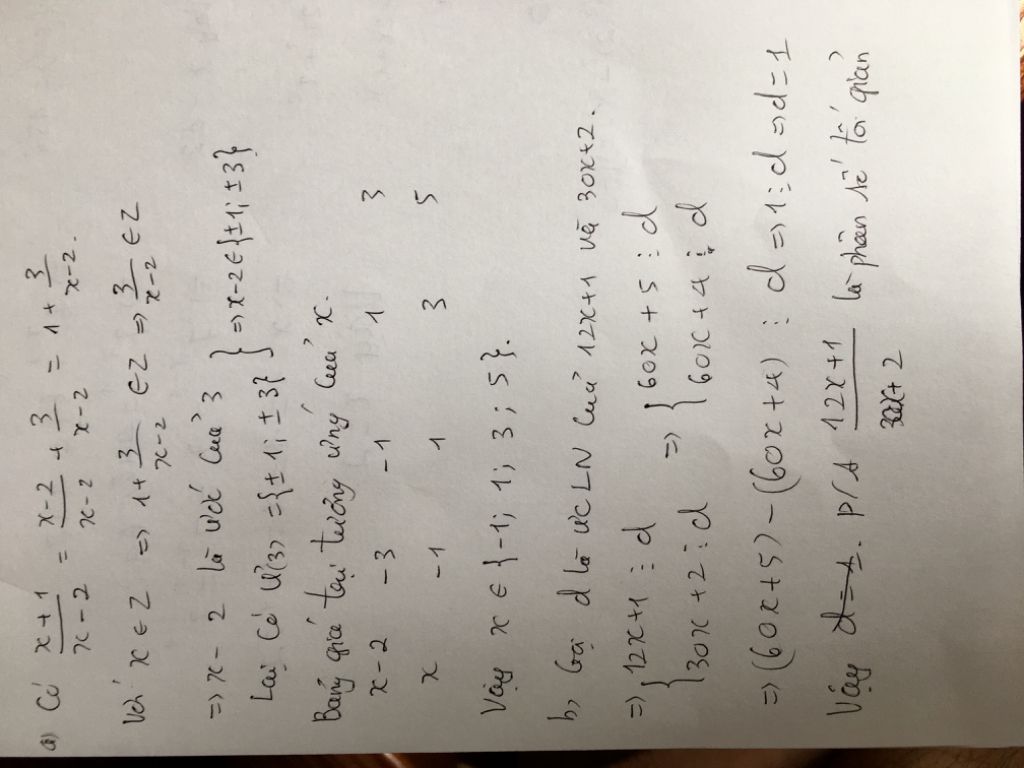 a) Có x+1/x-2 = x-2/x-2 + 3/x-2 = 1 + 3/x-2.
Với x ∈ Z => 1 + 3/x-2 ∈ Z => 3/x-2 ∈ Z
=> x - 2 là ước của 3
Lại có Ư(3) = {±1; ±3} } => x-2 ∈ {±1; ±3}
Bảng giá trị tương ứng của x.
x-2 -3 -1 1 3
x -1 1 3 5
Vậy x ∈ {-1; 1; 3; 5}.
b, Gọi d là ƯCLN của 12x+1 và 30x+2.
=> { 12x+1 ⋮ d => { 60x+5 ⋮ d
30x+2 ⋮ d 60x+4 ⋮ d
=> (60x+5) - (60x+4) ⋮ d => 1 ⋮ d => d = 1
Vậy P/S 12x+1/30x+2 là phân số tối giản